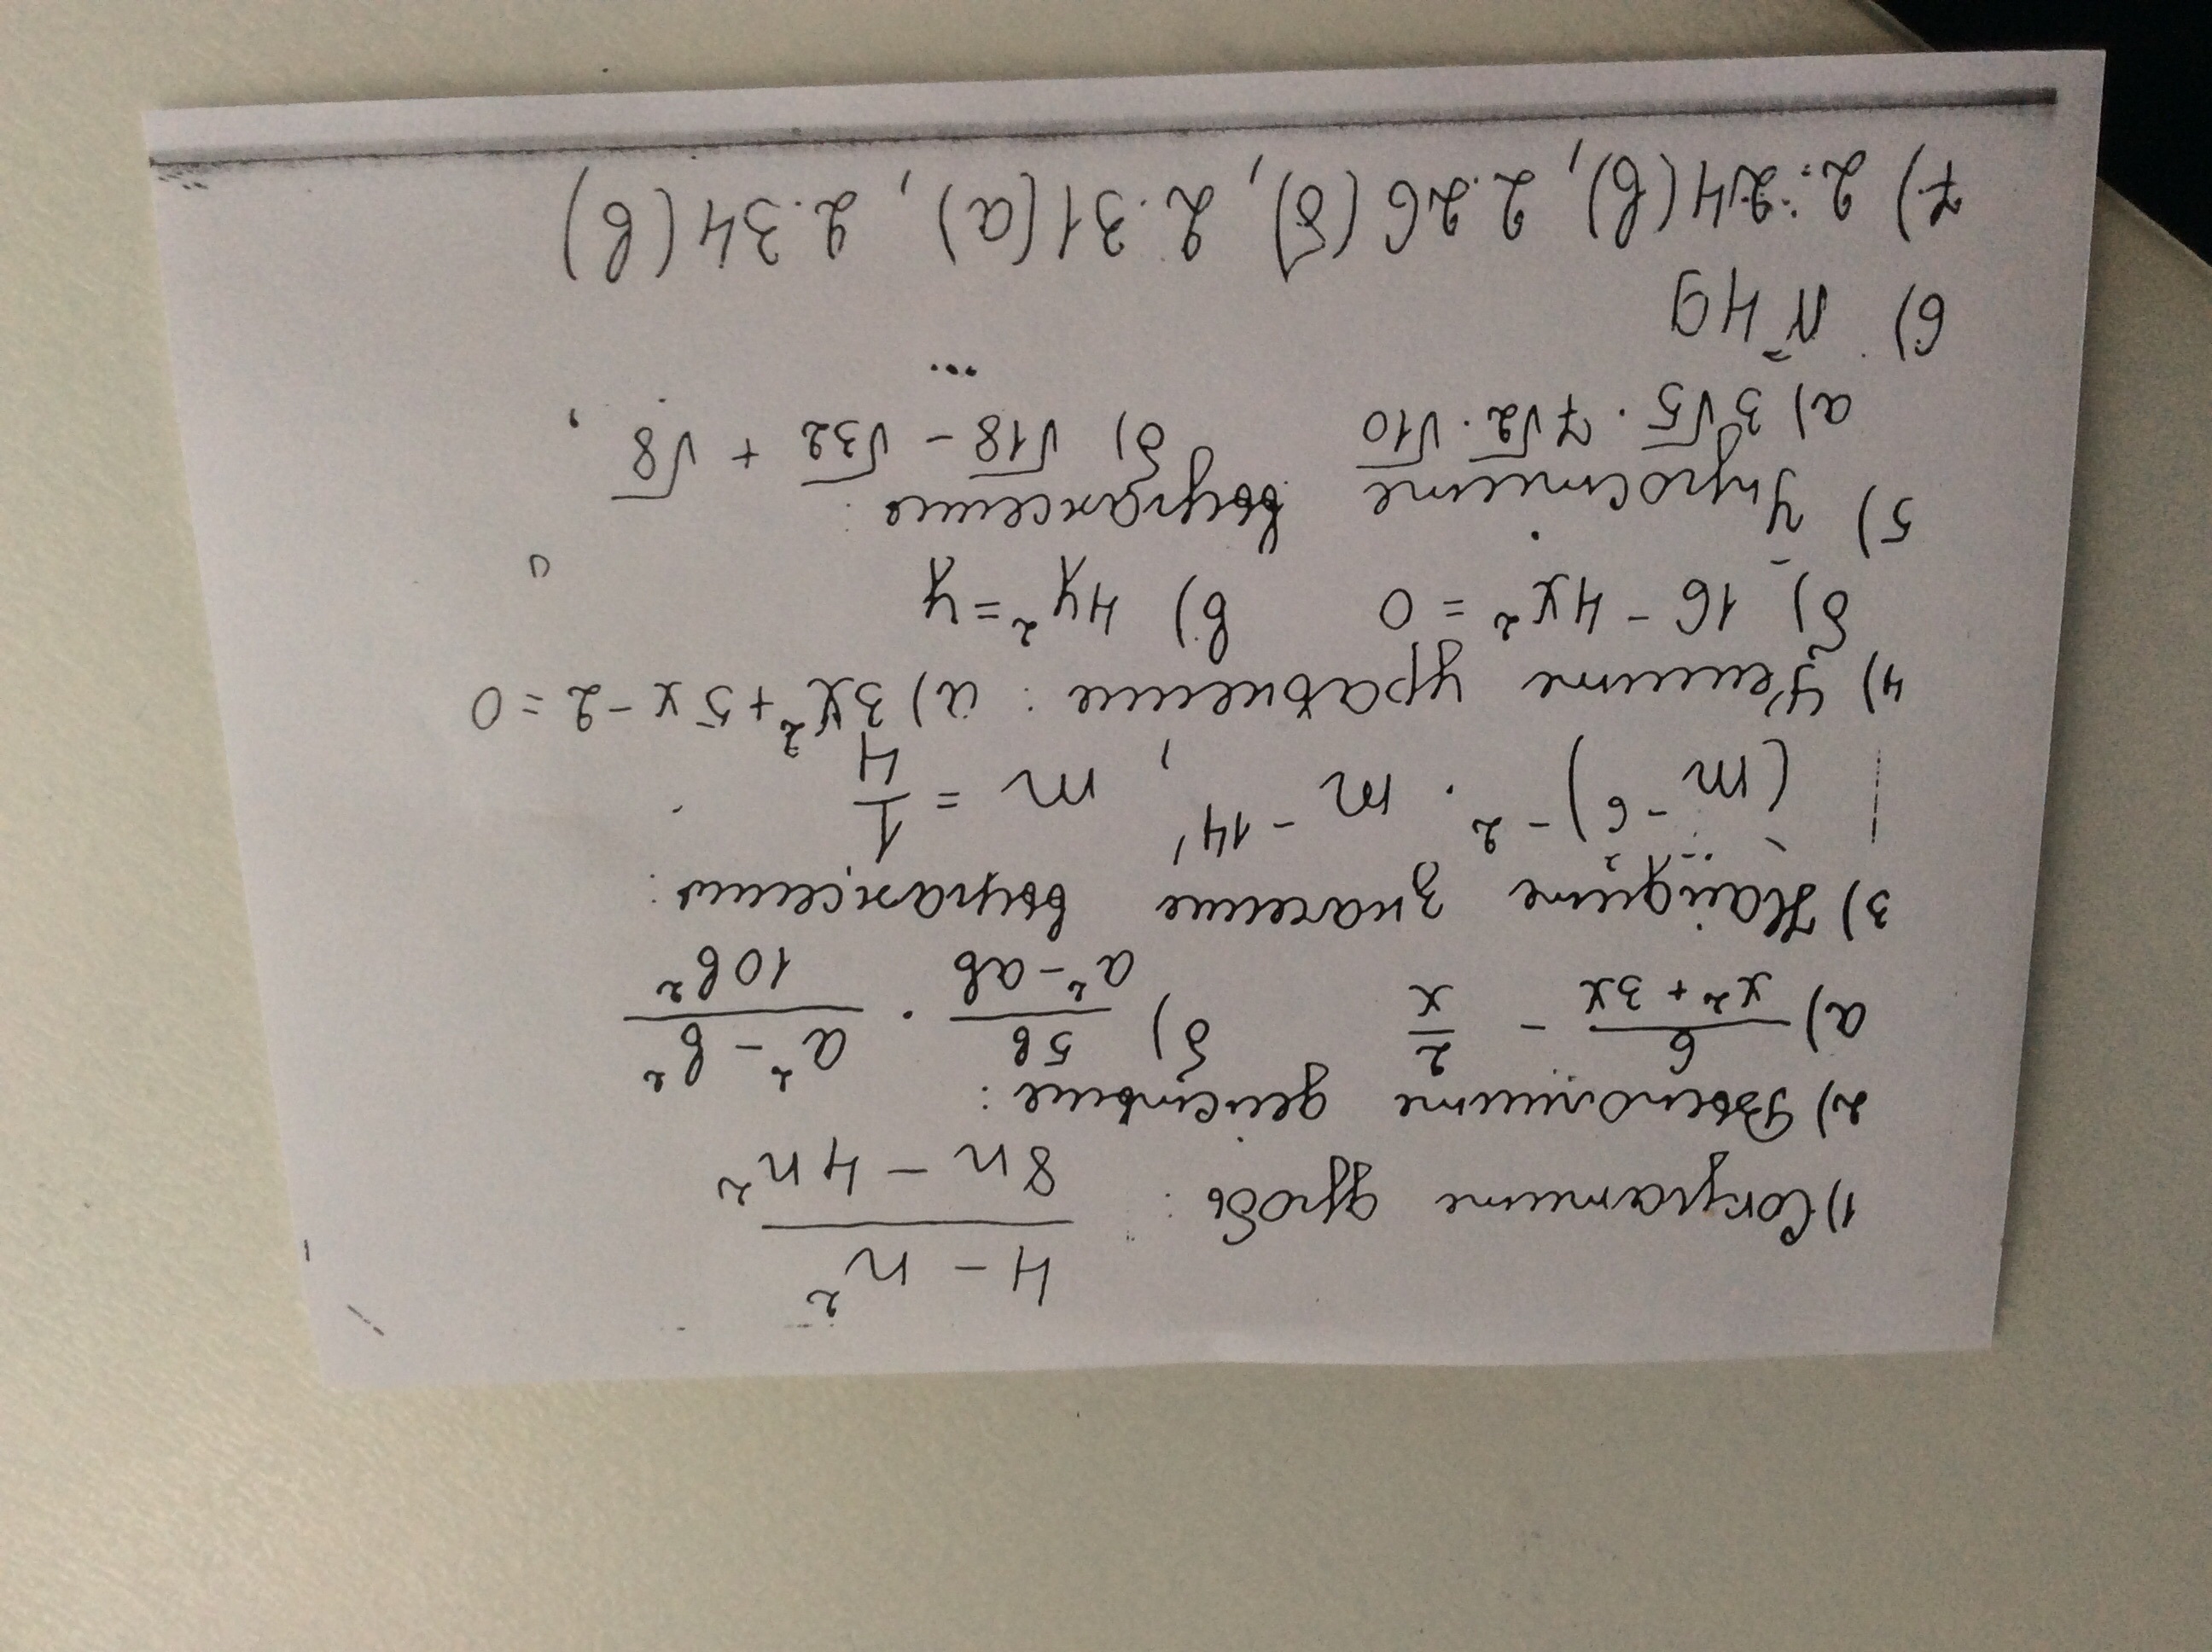 1) Сократите дробь: (4 - n²)/(8n - 4n²)
2) Выполните действие:
а) 6/(x² + 3x) - 2/x б) 5b/(a² - ab) · (a² - b²)/(10b²)
3) Найдите значение выражения:
(m⁻⁶)⁻² · m⁻¹⁴, m = 1/4
4) Решите уравнение: а) 3x² + 5x - 2 = 0
б) 16 - 4x² = 0 в) 4y² = y
5) Упростите выражение:
а) 3√5 · 7√2 · √10 б) √18 - √32 + √8
6) № 49
7) 2.24(в), 2.26(б), 2.31(а), 2.34(в)